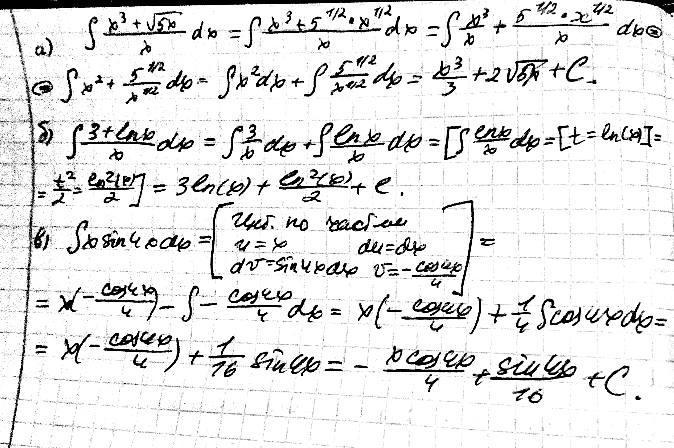 а) ∫ (x³ + √5x)/x dx = ∫ (x³ + 5^(1/2) · x^(1/2))/x dx = ∫ x³/x + (5^(1/2) · x^(1/2))/x dx =
= ∫ x² + 5^(1/2)/x^(1/2) dx = ∫ x² dx + ∫ 5^(1/2)/x^(1/2) dx = x³/3 + 2√5x + C.
б) ∫ (3 + ln x)/x dx = ∫ 3/x dx + ∫ (ln x)/x dx = [∫ (ln x)/x dx = [t = ln(x)] =
= t²/2 = ln²(x)/2] = 3 ln(x) + ln²(x)/2 + C.
в) ∫ x sin 4x dx = [Инт. по частям
u = x du = dx
dv = sin 4x dx v = -(cos 4x)/4] =
= x(-(cos 4x)/4) - ∫ -(cos 4x)/4 dx = x(-(cos 4x)/4) + 1/4 ∫ cos 4x dx =
= x(-(cos 4x)/4) + 1/16 sin 4x = -(x cos 4x)/4 + (sin 4x)/16 + C.